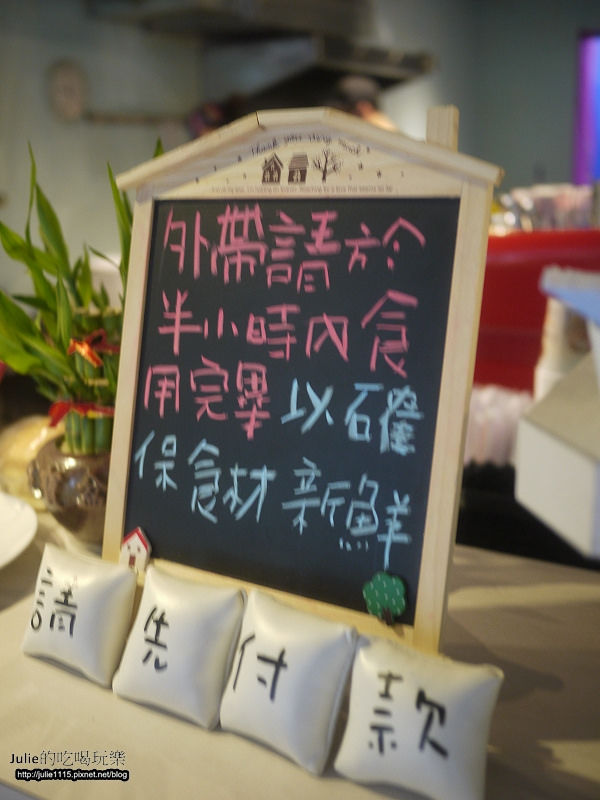 外帶請於
半小時內食
用完畢以確
保食材新鮮
請先付款
Julie的吃喝玩樂
http://julie1115.pixnet.net/blog